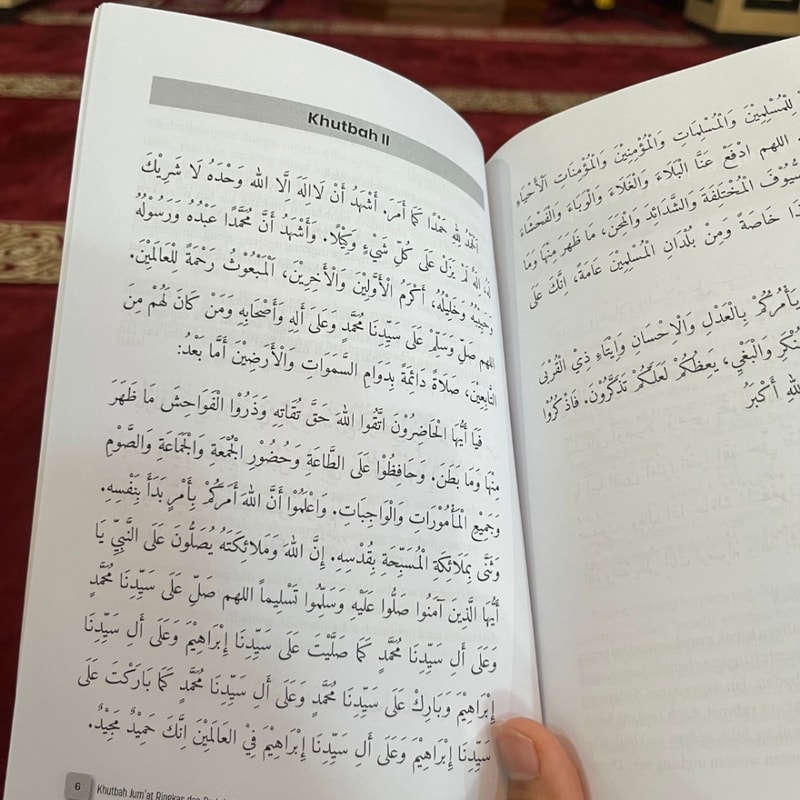 Khutbah II
الْحَمْدُ لِلّٰهِ حَمْدًا كَمَا أَمَرَ. أَشْهَدُ أَنْ لَاإِلَهَ إِلَّا اللّٰه وَحْدَهُ لَا شَرِيْكَ
لَهُ، اللّٰهُ لَمْ يَزَلْ عَلَى كُلِّ شَيْءٍ وَكِيْلًا. وَأَشْهَدُ أَنَّ مُحَمَّدًا عَبْدُهُ وَرَسُوْلُهُ
وَحَبِيْبُهُ وَخَلِيْلُهُ، أَكْرَمُ الْأَوَّلِيْنَ وَالْأَخِرِيْنَ، الْمَبْعُوْثُ رَحْمَةً لِلْعَالَمِيْنَ.
اللهم صَلِّ وَسَلِّمْ عَلَى سَيِّدِنَا مُحَمَّدٍ وَعَلَى أَلِهِ وَأَصْحَابِهِ وَمَنْ كَانَ لَهُمْ مِنَ
التَّابِعِيْنَ، صَلَاةً دَائِمَةً بِدَوَامِ السَّمَوَاتِ وَالْأَرَضِيْنَ أَمَّا بَعْدُ:
فَيَا أَيُّهَا الْحَاضِرُوْنَ اتَّقُوا اللّٰهَ حَقَّ تُقَاتِهِ وَذَرُوْا الْفَوَاحِشَ مَا ظَهَرَ
مِنْهَا وَمَا بَطَنَ. وَحَافِظُوْا عَلَى الطَّاعَةِ وَحُضُوْرِ الْجُمُعَةِ وَالْجَمَاعَةِ وَالصَّوْمِ
وَجَمِيْعِ الْمَأْمُوْرَاتِ وَالْوَاجِبَاتِ. وَاعْلَمُوْا أَنَّ اللّٰهَ أَمَرَكُمْ بِأَمْرٍ بَدَأَ بِنَفْسِهِ.
وَثَنَّى بِمَلَائِكَةِ الْمُسَبِّحَةِ بِقُدْسِهِ. إِنَّ اللّٰهَ وَمَلَائِكَتَهُ يُصَلُّوْنَ عَلَى النَّبِيِّ يَا
أَيُّهَا الَّذِيْنَ آمَنُوْا صَلُّوْا عَلَيْهِ وَسَلِّمُوْا تَسْلِيْماً اللهم صَلِّ عَلَى سَيِّدِنَا مُحَمَّدٍ
وَعَلَى أَلِ سَيِّدِنَا مُحَمَّدٍ كَمَا صَلَّيْتَ عَلَى سَيِّدِنَا إِبْرَاهِيْمَ وَعَلَى أَلِ سَيِّدِنَا
إِبْرَاهِيْمَ وَبَارِكْ عَلَى سَيِّدِنَا مُحَمَّدٍ وَعَلَى أَلِ سَيِّدِنَا مُحَمَّدٍ كَمَا بَارَكْتَ عَلَى
سَيِّدِنَا إِبْرَاهِيْمَ وَعَلَى أَلِ سَيِّدِنَا إِبْرَاهِيْمَ فِيْ الْعَالَمِيْنَ اِنَّكَ حَمِيْدٌ مَجِيْدٌ.
6 Khutbah Jum'at Ringkas dan
لِلْمُسْلِمِيْنَ وَالْمُسْلِمَاتِ وَالْمُؤْمِنِيْنَ وَالْمُؤْمِنَاتِ الْأَحْيَاءِ
اللهم ادْفَعْ عَنَّا الْبَلَاءَ وَالْغَلَاءَ وَالْوَبَاءَ وَالْفَحْشَاءَ
الْمُخْتَلِفَةَ وَالشَّدَائِدَ وَالْمِحَنَ، مَا ظَهَرَ مِنْهَا وَمَا
خَاصَةً وَمِنْ بُلْدَانِ الْمُسْلِمِيْنَ عَامَةً، اِنَّكَ عَلَى
يَأْمُرُكُمْ بِالْعَدْلِ وَالْاِحْسَانِ وَاِيْتَاءِ ذِي الْقُرْبَى
وَالْبَغْيِ، يَعِظُكُمْ لَعَلَّكُمْ تَذَكَّرُوْنَ. فَاذْكُرُوْا
أَكْبَرُ